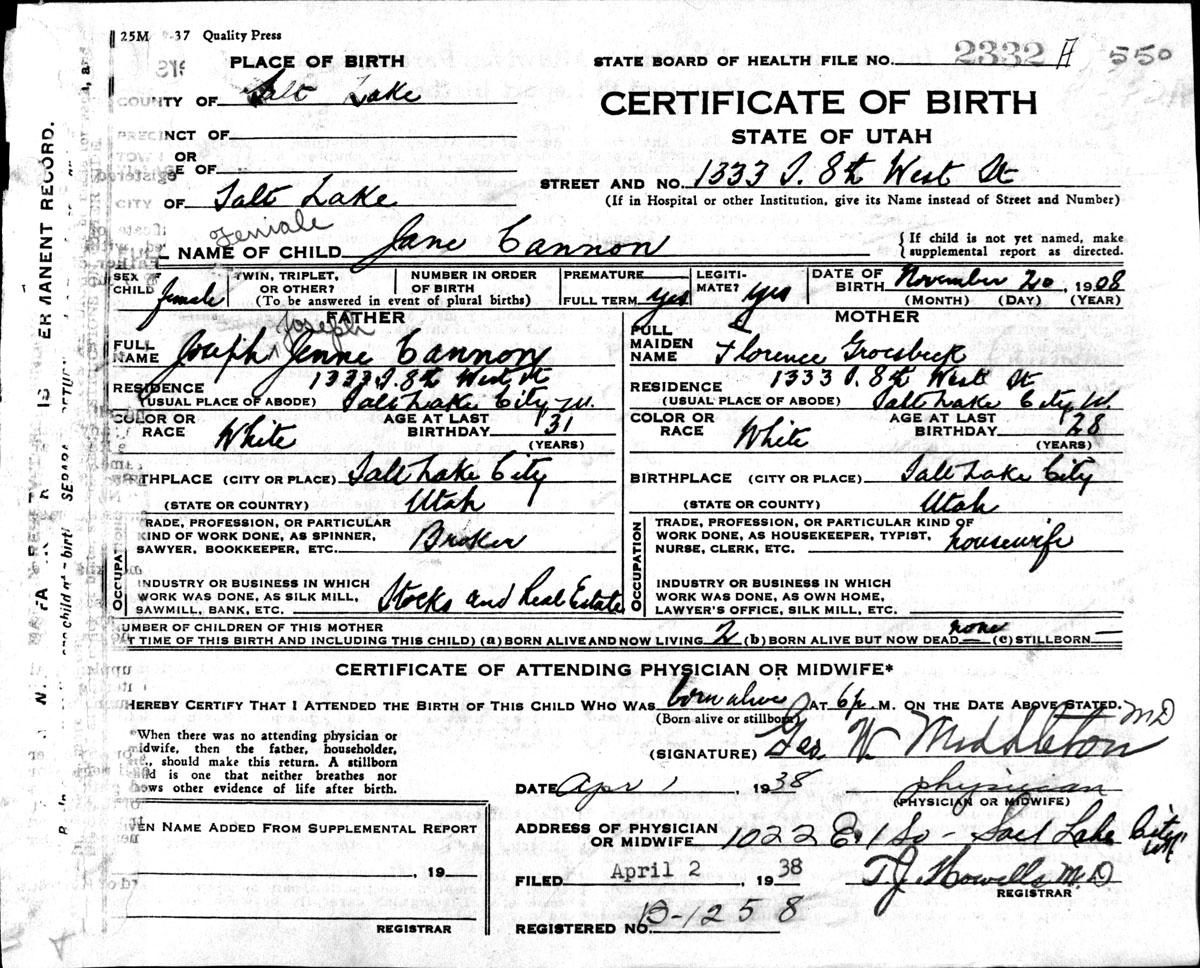 25M -37 Quality Press
PLACE OF BIRTH
COUNTY OF Salt Lake
PRECINCT OF
TOWN OR
E OF
CITY OF Salt Lake
STATE BOARD OF HEALTH FILE NO. 2332 A 550
CERTIFICATE OF BIRTH
STATE OF UTAH
STREET AND NO. 1333 S. 8th West St
(If in Hospital or other Institution, give its Name instead of Street and Number)
Female
L NAME OF CHILD Jane Cannon
{If child is not yet named, make
supplemental report as directed.
SEX OF CHILD female
TWIN, TRIPLET, OR OTHER?
NUMBER IN ORDER OF BIRTH
(To be answered in event of plural births)
PREMATURE
FULL TERM yes
LEGITIMATE? yes
DATE OF BIRTH November 20, 1908
(MONTH) (DAY) (YEAR)
FATHER
Joseph
FULL NAME Joseph Jenne Cannon
RESIDENCE 1333 S. 8th West St
(USUAL PLACE OF ABODE) Salt Lake City, U.
COLOR OR RACE White
AGE AT LAST BIRTHDAY 31
(YEARS)
RTHPLACE (CITY OR PLACE) Salt Lake City
(STATE OR COUNTRY) Utah
OCCUPATION
TRADE, PROFESSION, OR PARTICULAR
KIND OF WORK DONE, AS SPINNER,
SAWYER, BOOKKEEPER, ETC. Broker
INDUSTRY OR BUSINESS IN WHICH
WORK WAS DONE, AS SILK MILL,
SAWMILL, BANK, ETC. Stocks and Real Estate
MOTHER
FULL MAIDEN NAME Florence Groesbeck
RESIDENCE 1333 S. 8th West St
(USUAL PLACE OF ABODE) Salt Lake City U.
COLOR OR RACE White
AGE AT LAST BIRTHDAY 28
(YEARS)
BIRTHPLACE (CITY OR PLACE) Salt Lake City
(STATE OR COUNTY) Utah
OCCUPATION
TRADE, PROFESSION, OR PARTICULAR KIND OF
WORK DONE, AS HOUSEKEEPER, TYPIST,
NURSE, CLERK, ETC. housewife
INDUSTRY OR BUSINESS IN WHICH
WORK WAS DONE, AS OWN HOME,
LAWYER'S OFFICE, SILK MILL, ETC.
UMBER OF CHILDREN OF THIS MOTHER
T TIME OF THIS BIRTH AND INCLUDING THIS CHILD) (a) BORN ALIVE AND NOW LIVING 2 (b) BORN ALIVE BUT NOW DEAD none (c) STILLBORN —
CERTIFICATE OF ATTENDING PHYSICIAN OR MIDWIFE*
HEREBY CERTIFY THAT I ATTENDED THE BIRTH OF THIS CHILD WHO WAS born alive AT 6 p. M. ON THE DATE ABOVE STATED.
(Born alive or stillborn)
*When there was no attending physician or
midwife, then the father, householder,
., should make this return. A stillborn
d is one that neither breathes nor
ows other evidence of life after birth.
(SIGNATURE) Geo. W. Middleton MD
DATE Apr 1, 1938 physician
(PHYSICIAN OR MIDWIFE)
ADDRESS OF PHYSICIAN
OR MIDWIFE 1022 E. 1 So - Salt Lake City Ut
EN NAME ADDED FROM SUPPLEMENTAL REPORT
, 19
REGISTRAR
FILED April 2 1938 T. J. Howells M.D.
REGISTRAR
REGISTERED NO. B-1258
ERMANENT RECORD.